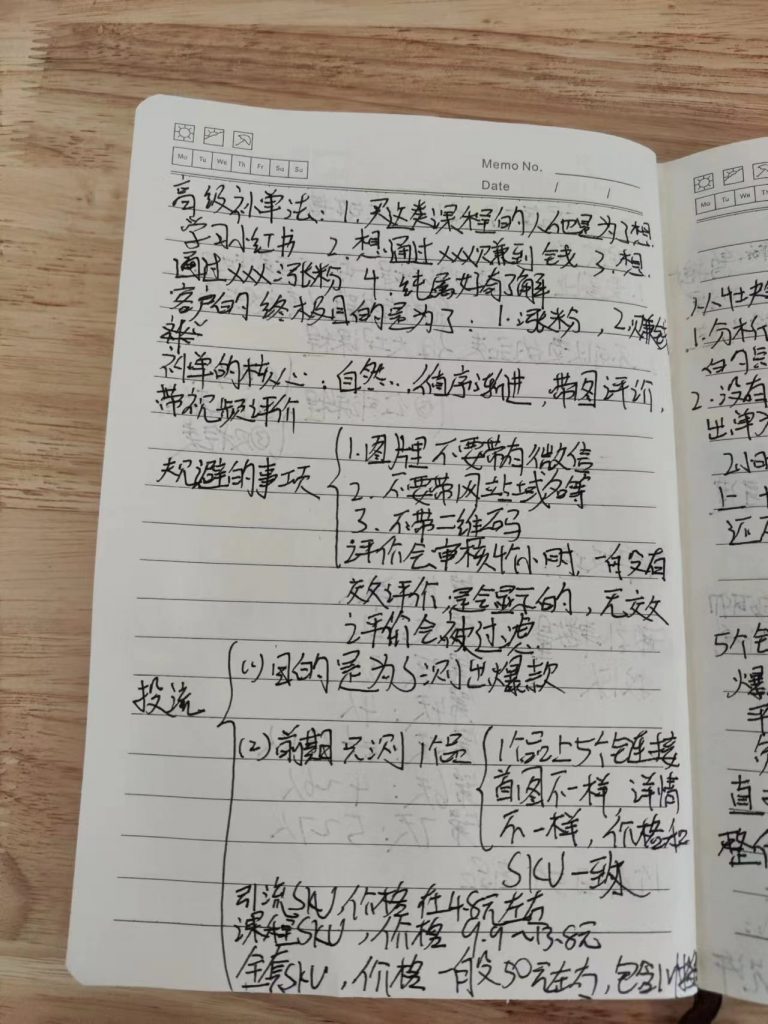 Mo Tu We Th Fr Sa Su
Memo No.
Date / /
高级补单法：1. 买这类课程的人他是为了想
学习小红书 2. 想通过xxx赚到钱 3. 想
通过xxx涨粉 4. 纯属好奇了解
客户的终极目的是为了：1. 涨粉，2. 赚钱
补单的核心：自然，循序渐进，带图评价，
带视频评价
规避的事项
1. 图片里不要带有微信
2. 不要带网站域名等
3. 不带二维码
评价会审核4个小时，一般有
效评价，是会显示的，无效
评价会被过滤
投流
(1) 目的是为了测出爆款
(2) 前期只测1个品
1个品上5个链接
首图不一样 详情
不一样，价格和
SKU一致
引流SKU，价格在4.8元左右
课程SKU，价格9.9~13.8元
全套SKU，价格一般50元左右，包含
Mo Tu We Th
1. 分析
2. 没有
出单
2小时
5个
爆
平
直
整个